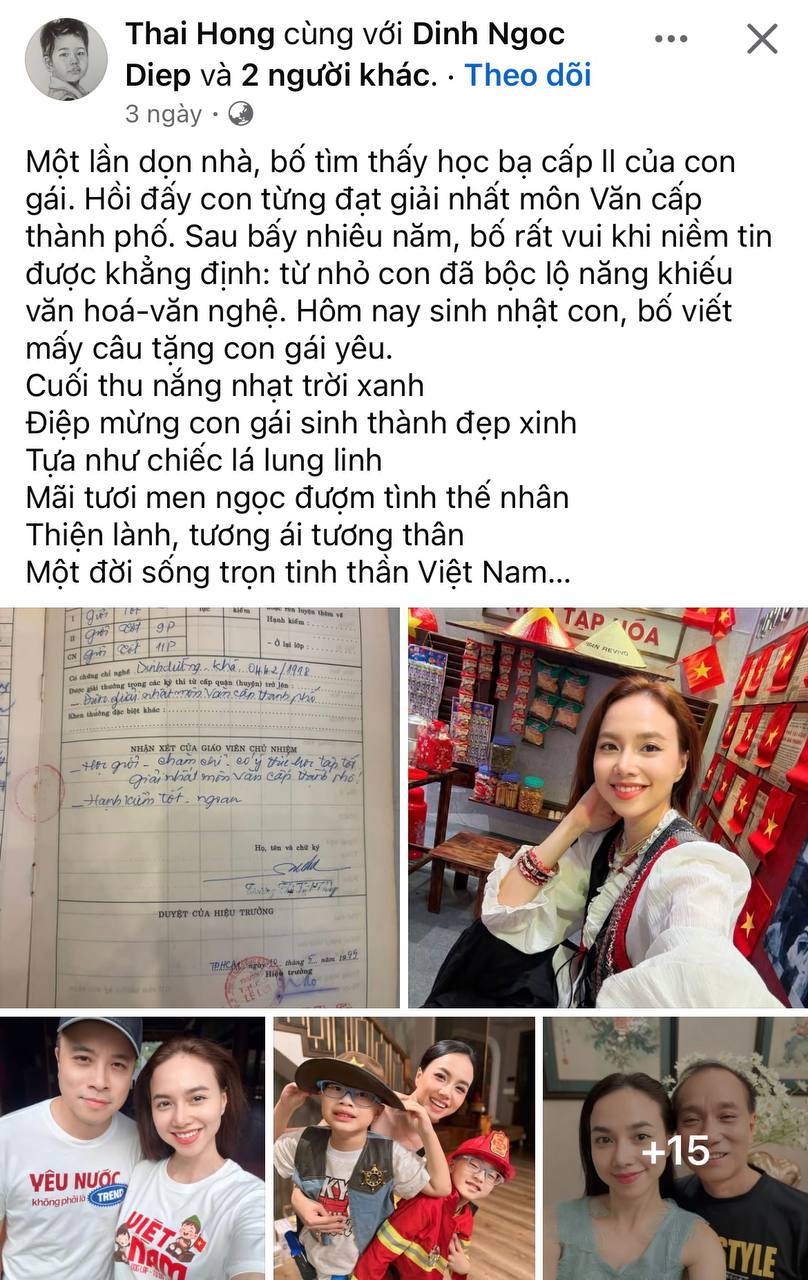 Thai Hong cùng với Dinh Ngoc
Diep và 2 người khác. · Theo dõi
3 ngày ·
Một lần dọn nhà, bố tìm thấy học bạ cấp II của con
gái. Hồi đấy con từng đạt giải nhất môn Văn cấp
thành phố. Sau bấy nhiêu năm, bố rất vui khi niềm tin
được khẳng định: từ nhỏ con đã bộc lộ năng khiếu
văn hoá-văn nghệ. Hôm nay sinh nhật con, bố viết
mấy câu tặng con gái yêu.
Cuối thu nắng nhạt trời xanh
Điệp mừng con gái sinh thành đẹp xinh
Tựa như chiếc lá lung linh
Mãi tươi men ngọc đượm tình thế nhân
Thiện lành, tương ái tương thân
Một đời sống trọn tinh thần Việt Nam...
kiểm
Hạnh kiểm:
I giỏi Tốt
II giỏi Tốt 9P
- Ở lại lớp:
CN giỏi Tốt 11P
Có chứng chỉ nghề Dinh dưỡng khá
Được giải thưởng trong các kỳ thi từ cấp quận (huyện) trở lên:
giải nhất môn Văn cấp thành phố
Khen thưởng đặc biệt khác:
NHẬN XÉT CỦA GIÁO VIÊN CHỦ NHIỆM
- Học giỏi - chăm chỉ - có ý thức học tập tốt
Giải nhất môn văn cấp thành phố!
- Hạnh kiểm tốt - ngoan
Họ, tên và chữ ký
DUYỆT CỦA HIỆU TRƯỞNG
TPHCM ngày 10 tháng 5 năm 1999
Hiệu trưởng
TẠP HÓA
YÊU NƯỚC
không phải là TREND
VIỆT
Nam
+15
STYLE